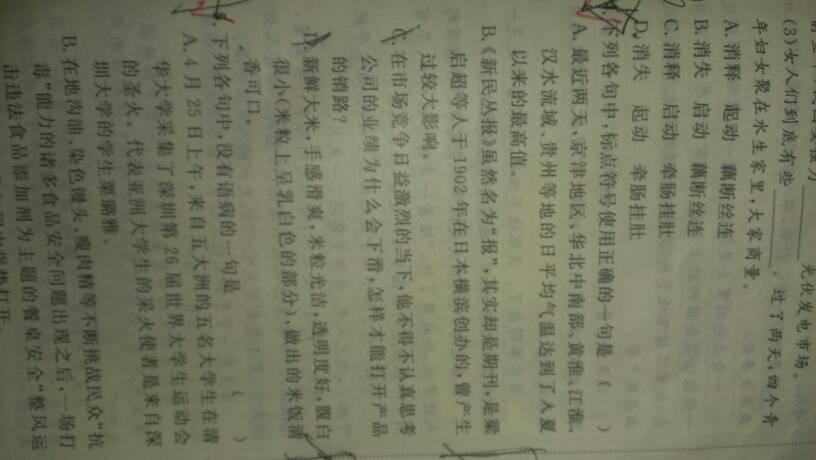 光伏发电市场。
(3)女人们到底有些________。过了两天,四个青
年妇女聚在水生家里,大家商量。
A.消释 起动 藕断丝连
B.消失 启动 藕断丝连
C.消释 启动 牵肠挂肚
D.消失 起动 牵肠挂肚
下列各句中,标点符号使用正确的一句是( )
A.最近两天,京津地区、华北中南部、黄淮、江淮、
汉水流域、贵州等地的日平均气温达到了入夏
以来的最高值。
B.《新民丛报》虽然名为“报”,其实却是期刊,是梁
启超等人于1902年在日本横滨创办的,曾产生
过较大影响。
C.在市场竞争日益激烈的当下,他不得不认真思考
公司的业绩为什么会下滑,怎样才能打开产品
的销路?
D.新鲜大米,手感滑爽,米粒光洁,透明度好,腹白
很小(米粒上呈乳白色的部分),做出的米饭清
香可口。
5.下列各句中,没有语病的一句是( )
A.4月25日上午,来自五大洲的五名大学生在清
华大学采集了深圳第26届世界大学生运动会
的圣火。代表亚洲大学生的采火使者是来自深
圳大学的学生栗璐雅。
B.在地沟油、染色馒头、瘦肉精等不断挑战民众“抗
毒”能力的诸多食品安全问题出现之后,一场打
击违法食品添加剂为主题的餐桌安全“整风运